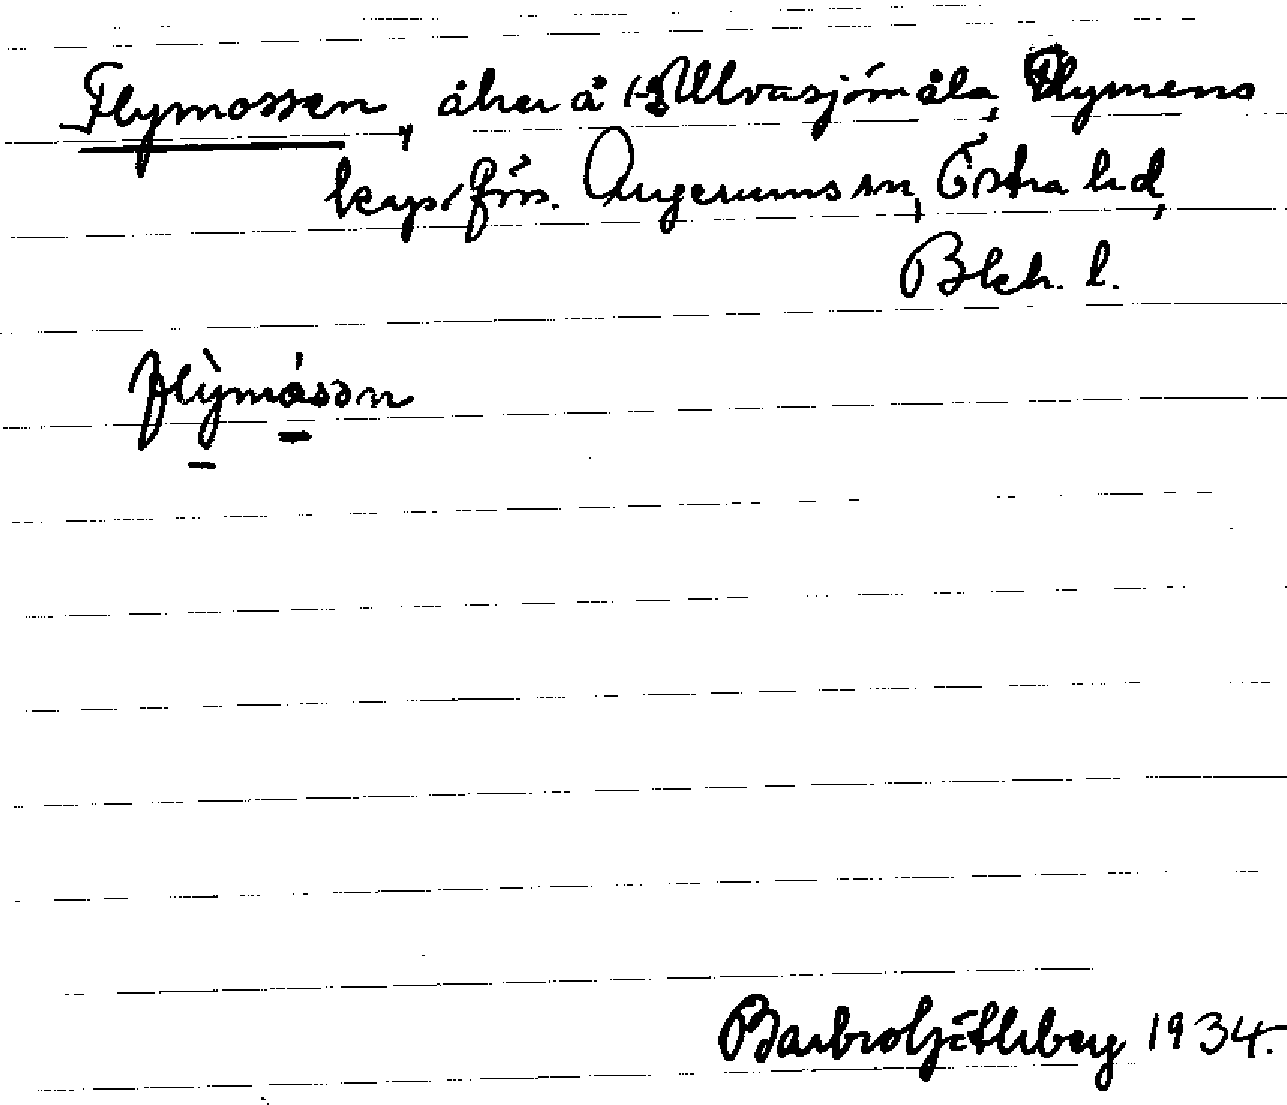 Flymossen, åker å 1/2 Ulvasjömåla, Flymens
kap. förs. Augerums sn, Östra hd,
Blek. l.
flỳmósən
Barbro 1934.